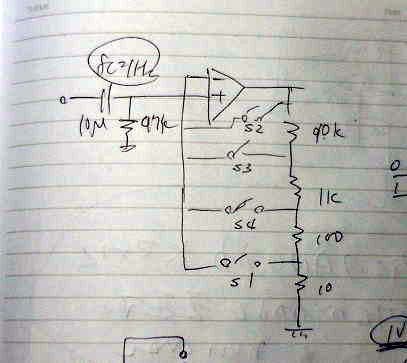 fc=1Hz
10μ
47k
S2
90k
S3
1k
S4
100
S1
10
0
1
1V